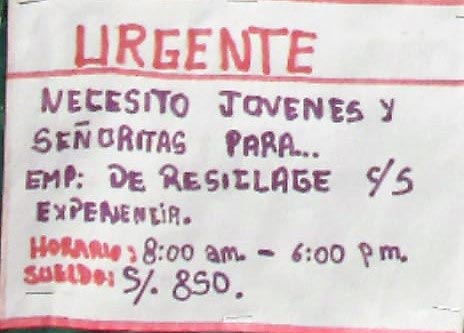 URGENTE
NECESITO JOVENES Y
SEÑORITAS PARA...
EMP: DE RESICLAGE C/S
EXPERIENCIA.
HORARIO: 8:00 am. - 6:00 pm.
SUELDO: S/. 850.